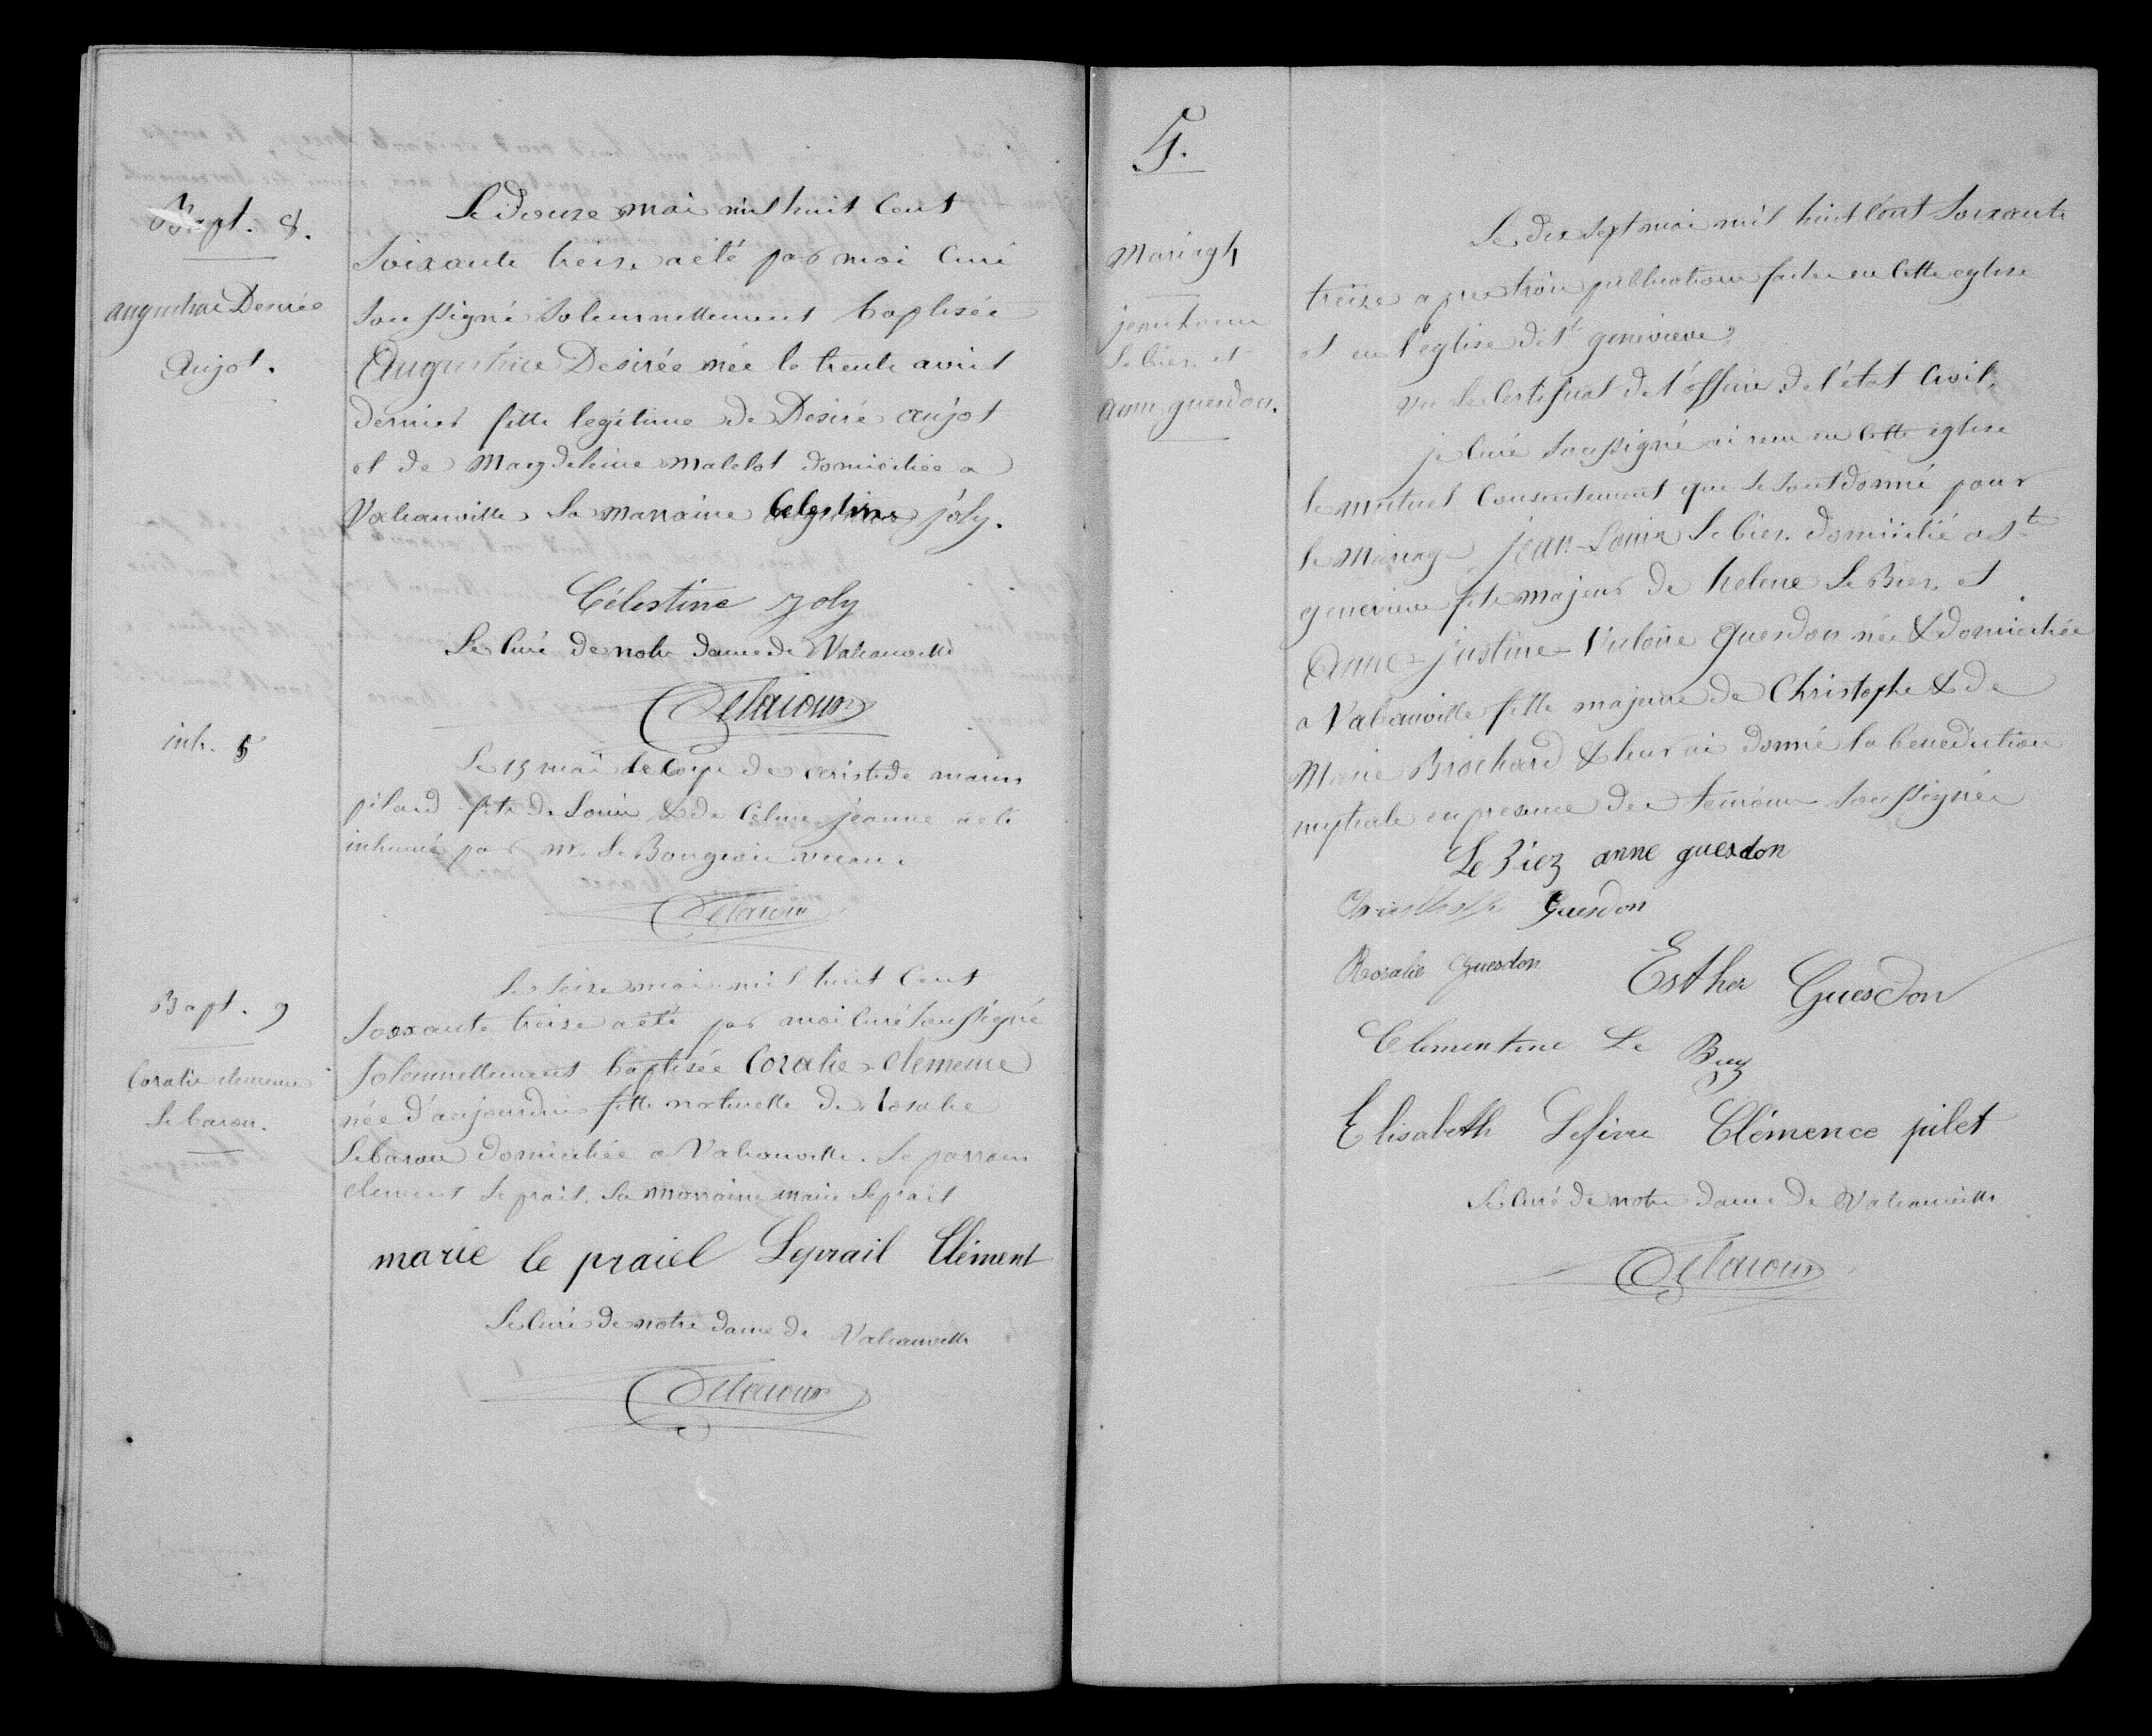 Bapt. 8.
augustine Desirée
Aujot.
Le Douze mai mil huit Cent
Soixante treize a été par moi Curé
Soussigné Solennellement baptisée
Augustine Desirée née le trente avril
dernier fille legitime de Desiré aujot
et de Magdeleine malelot domiciliée a
Valcanville La marraine Celestine joly.
Célestine joly
Le Curé de notre dame de Valcanville
Delacour
inh. 5
Le 15 mai le Corps de aristide
pilard fils de Louis & de Celine jeanne a ete
inhumé par mr Le Bourgeois vicaire
Delacour
Bapt. 9
Coralie clemence
Lebaron.
Le seize mai mil huit Cent
Soixante treize a été par moi Curé Soussigné
Solennellement baptisée Coralie Clemence
née d'aujourdui fille naturelle de Rosalie
Lebaron domiciliée a Valcanville. Le parrain
clement Leprail. La marraine marie Leprail
marie le praiel Leprail Clément
Le Curé de notre dame de Valcanville
Delacour
5.
Mariag 4
jean Louis
Le biez et
anne guesdon.
Le dix Sept mai mil huit Cent Soixante
treize apres trois publications faites en Cette eglise
et en l'eglise de Ste genevieve,
vu le Certificat de l'officier de l'état Civil,
je Curé Soussigné ai recu en Cette église
le mutuel Consentement que se sont donné pour
le Mariage jean-Louis Le biez domicilié a Ste
genevieve fils majeur de helene Le Biez et
Anne-justine-Victoire Guesdon née & domiciliée
a Valcanville fille majeure de Christophe & de
Marie Brochard & leur ai donné la benediction
nuptiale en presence des temoins Soussignés
Le Biez anne guesdon
Christophe Guesdon
Rosalie Guesdon Esther Guesdon
Clementine Le Biez
Elisabeth Lefivre Clémence pilet
Le Curé de notre dame de Valcanville
Delacour